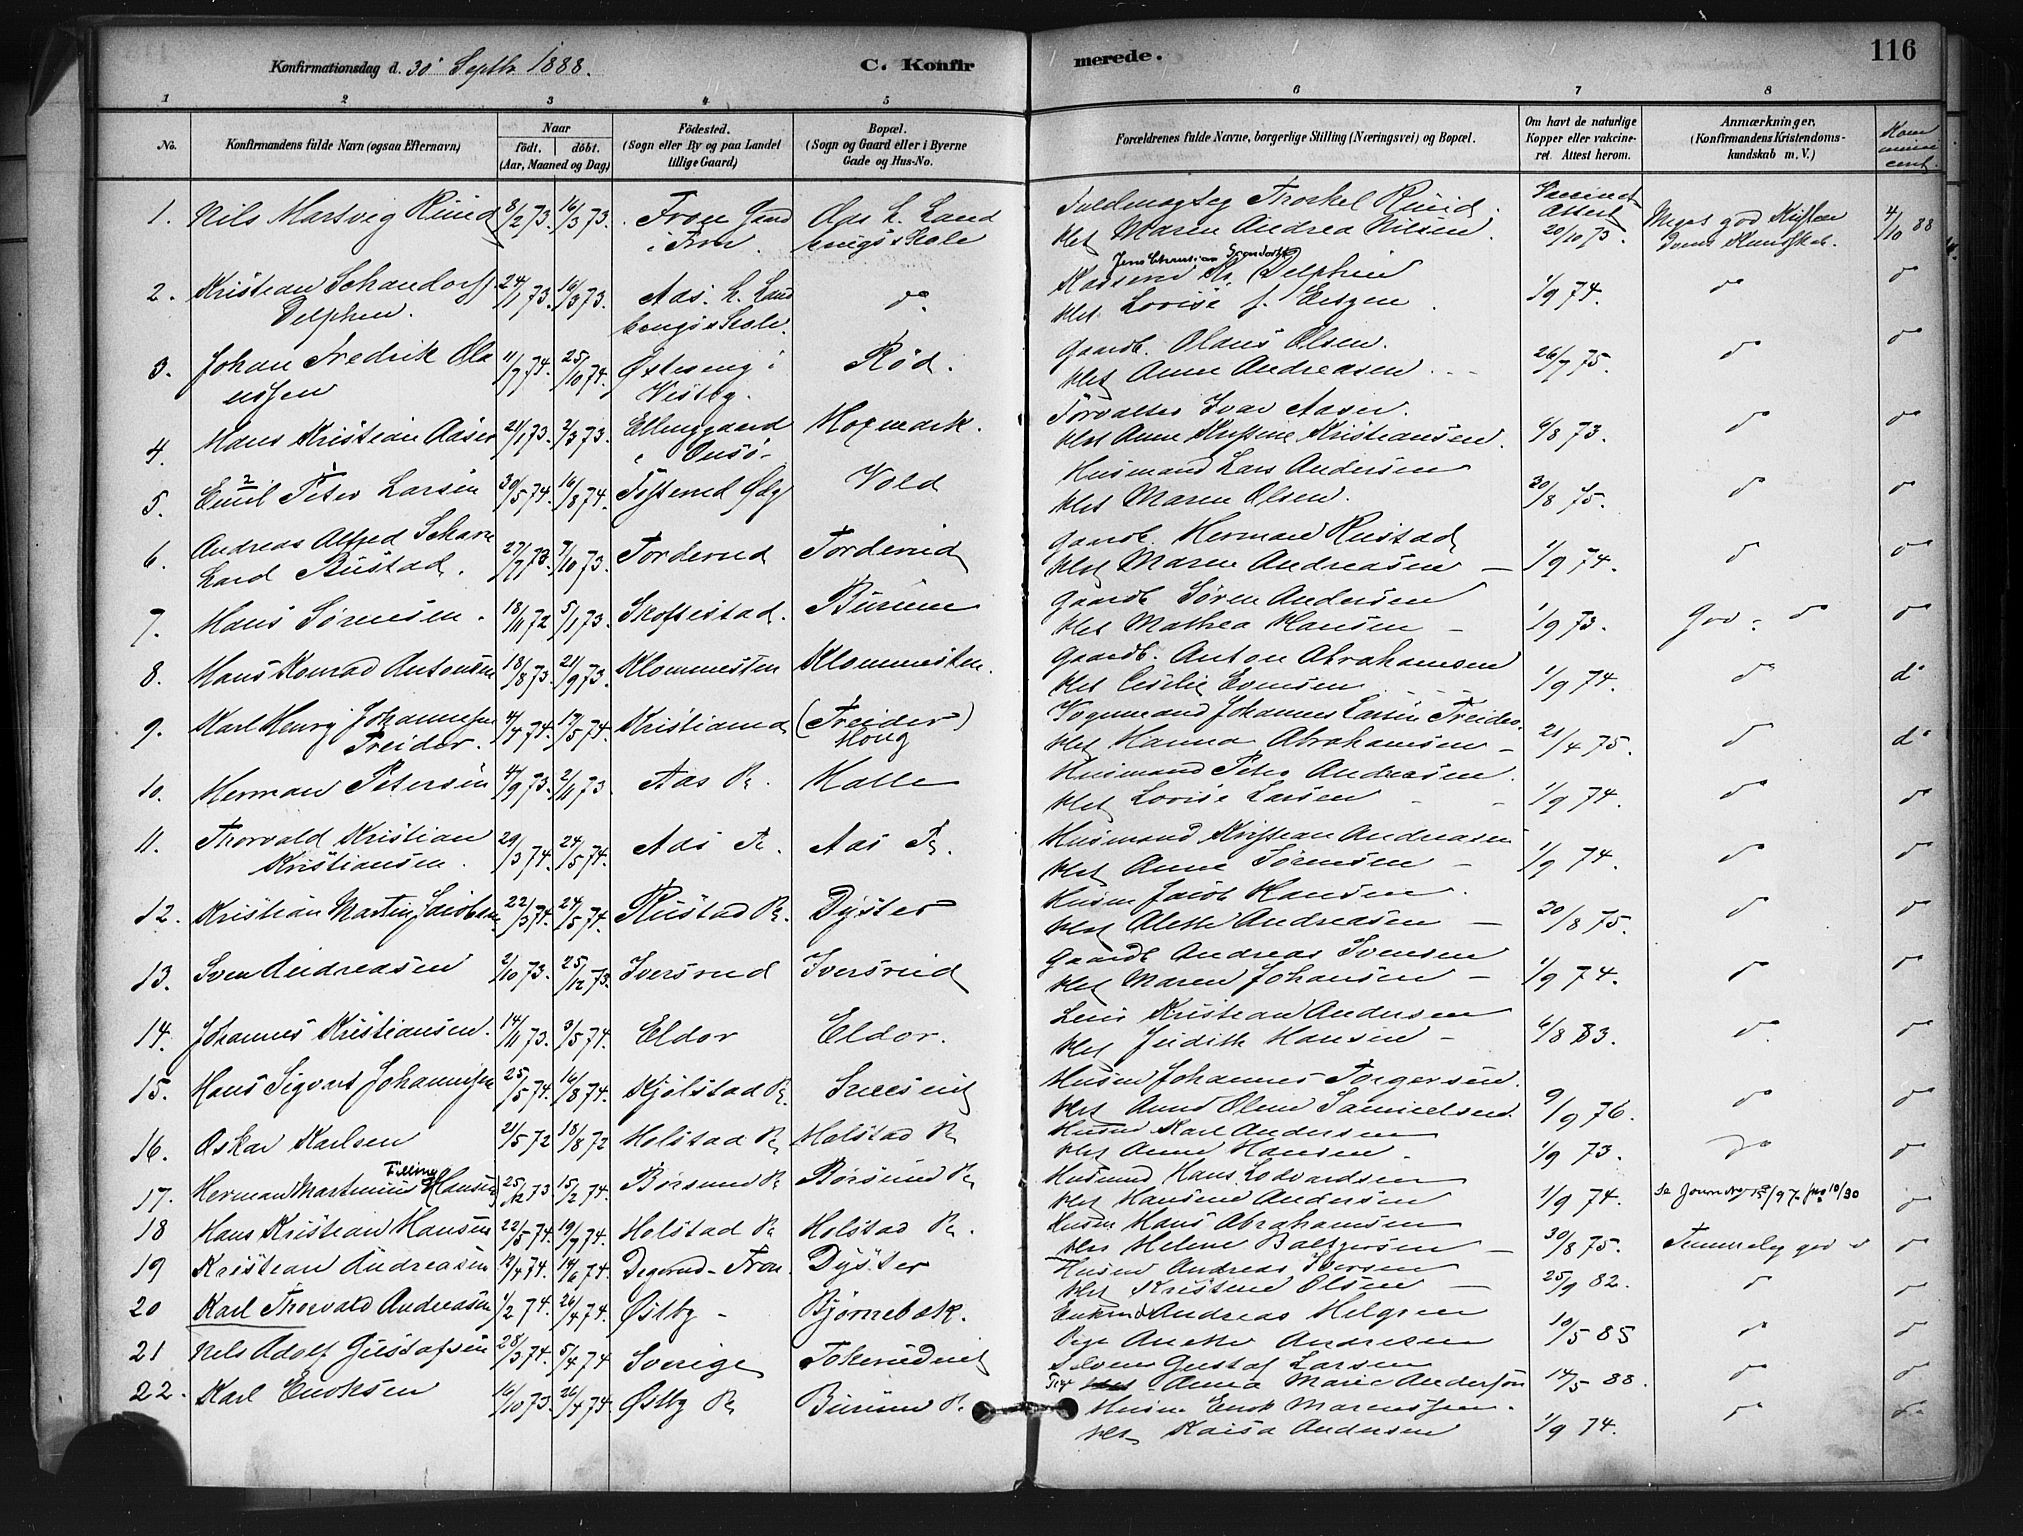 Konfirmationsdag d. 30' Septbr 1888.
C. Konfir
merede.
116
1 2 3 4 5 6 7 8
No.
Konfirmandens fulde Navn (ogsaa Efternavn)
Naar
födt. döbt.
(Aar, Maaned og Dag)
Födested.
(Sogn eller By og paa Landet
tillige Gaard)
Bopæl.
(Sogn og Gaard eller i Byerne
Gade og Hus-No.
Forældrenes fulde Navne, borgerlige Stilling (Næringsvei) og Bopæl.
Om havt de naturlige
Kopper eller vakcine-
ret. Attest herom.
Anmærkninger,
(Konfirmandens Kristendoms-
kundskab m. V.)
1. Nils Martsvig Ruud 8/2 73. 16/3 73. Fron Gaard i Fron. Aas h. Land brugsskole Fuldmægtig Thorkel Ruud. Hst Maren Andrea Nilsen. Vaccinet Attest 20/10 73. Meget god Kristendoms Kundskab. 4/10 88
2. Kristian Schandorff Delphin. 24/1 73. 16/3 73. Aas. h. Land brugsskole. do Jens Christian Kasserer Kr. Delphin Hst. Lovise f. 1/9 74. do do
3. Johan Fredrik Olaussen 11/7 74. 25/10 74. Østeseng i Vestby. Rød. Gaardb. Olaus Olsen. Hst Anne Andreasen 26/7 75. do do
4. Hans Kristian Aaser 21/1 73. 2/3 73. Ellinggaard i Onsø. Hogmark. Forvalter Ivar Aaser. Hst Anne Kristine Kristiansen. 6/8 73. do do
5. Emil Peter Larsen 30/5 74. 16/8 74. Vold Husmand Lars Andersen Hst Maren Olsen. 30/8 75. do do
6. Andreas Alfred Rustad. 27/7 73. 7/10 73. Torderud Torderud Gaardb. Herman Rustad Hst Maren Andreasen 1/9 74. do do
7. Hans Sørensen. 18/11 72 5/1 73. Skoftestad. Burum Gaardb Søren Andersen Hst Mathea Hansen 1/9 73. God do do
8. Hans Konrad Antonsen 18/8 73. 21/9 73. Klommesten Klommesten. Gaardb. Anton Abrahamsen Hst Cecilie Evensen 1/9 74. do do
9. Karl Henry Johannesen Treider. 4/4 74. 17/5 74. Kristiania (Treider) Haug Vognmand Johannes Larsen Treider. Hst Hanna Abrahamsen 21/4 75. do do
10. Herman Petersen 4/9 73. 2/11 73. Aas Pr. Halle Husmand Peter Andreasen. Hst Lovise Larsen 1/9 74. do do
11. Thorvald Kristian Kristiansen. 29/3 74. 24/5 74. Aas Pr. Aas Pr. Husmand Kristian Andreasen Hst Anne Sørensen 1/9 74. do do
12. Kristian Martin Jacobsen 22/3 74. 24/5 74. Rustad Pr. Dyster Husm Jacob Hansen. Hst Alette Andreasen 30/8 75. do do
13. Sven Andreasen 2/10 73. 25/12 73. Iversrud Iversrud Gaardb Andreas Svensen Hst Maren Johansen 1/9 74. do do
14. Johannes Kristiansen. 14/11 73. 3/5 74. Eldor Eldor. Kristian Andersen Hst Judith Hansen 6/8 83. do do
15. Hans Sigvart Johannesen 25/5 74. 16/8 74. Kjølstad Pr. Husm Johannes Torgersen. Hst Anne Oline Samuelsen. 9/9 76. do do
16. Oskar Karlsen 2/5 72 18/8 72 Holstad Pr Holstad Pr Husm Karl Andersen Hst Anne Hansen. 1/9 73. do do
17. Herman Martinius (Hansen) 25/12 73 15/2 74. Børsund Pr Børsund Pr Husmand Hans Lodvardsen Hst Hansine Andersen 1/9 74. do
18 Hans Kristian Hansen 22/5 74. 19/7 74. Holstad Pr Holstad Pr. Husm Hans Abrahamsen Hst Helene Baltzersen 30/8 75. Temmelig god do do
19 Kristian Andreasen 12/4 74. 14/6 74. Degerud - Fron. Dyster Husm Andreas Iversen Hst Kristine Olsen 25/9 82. do do
20 Karl Thorvald Andreasen 1/2 74. 26/4 74. Østby Bjørnebæk. Enkem Andreas Helgren Pige Anette Andresen 10/5 85 do do
21 Nils Adolf Gustafsen 28/3 74. 5/4 74 Sverige Gustaf Larsen Anna Marie Andersen 14/5 88. do do
22. Karl Enoksen 16/10 73. 26/4 74. Østby Pr Burum Pr. Husm Enok Hst Kaisa Andersen 1/9 74. do do